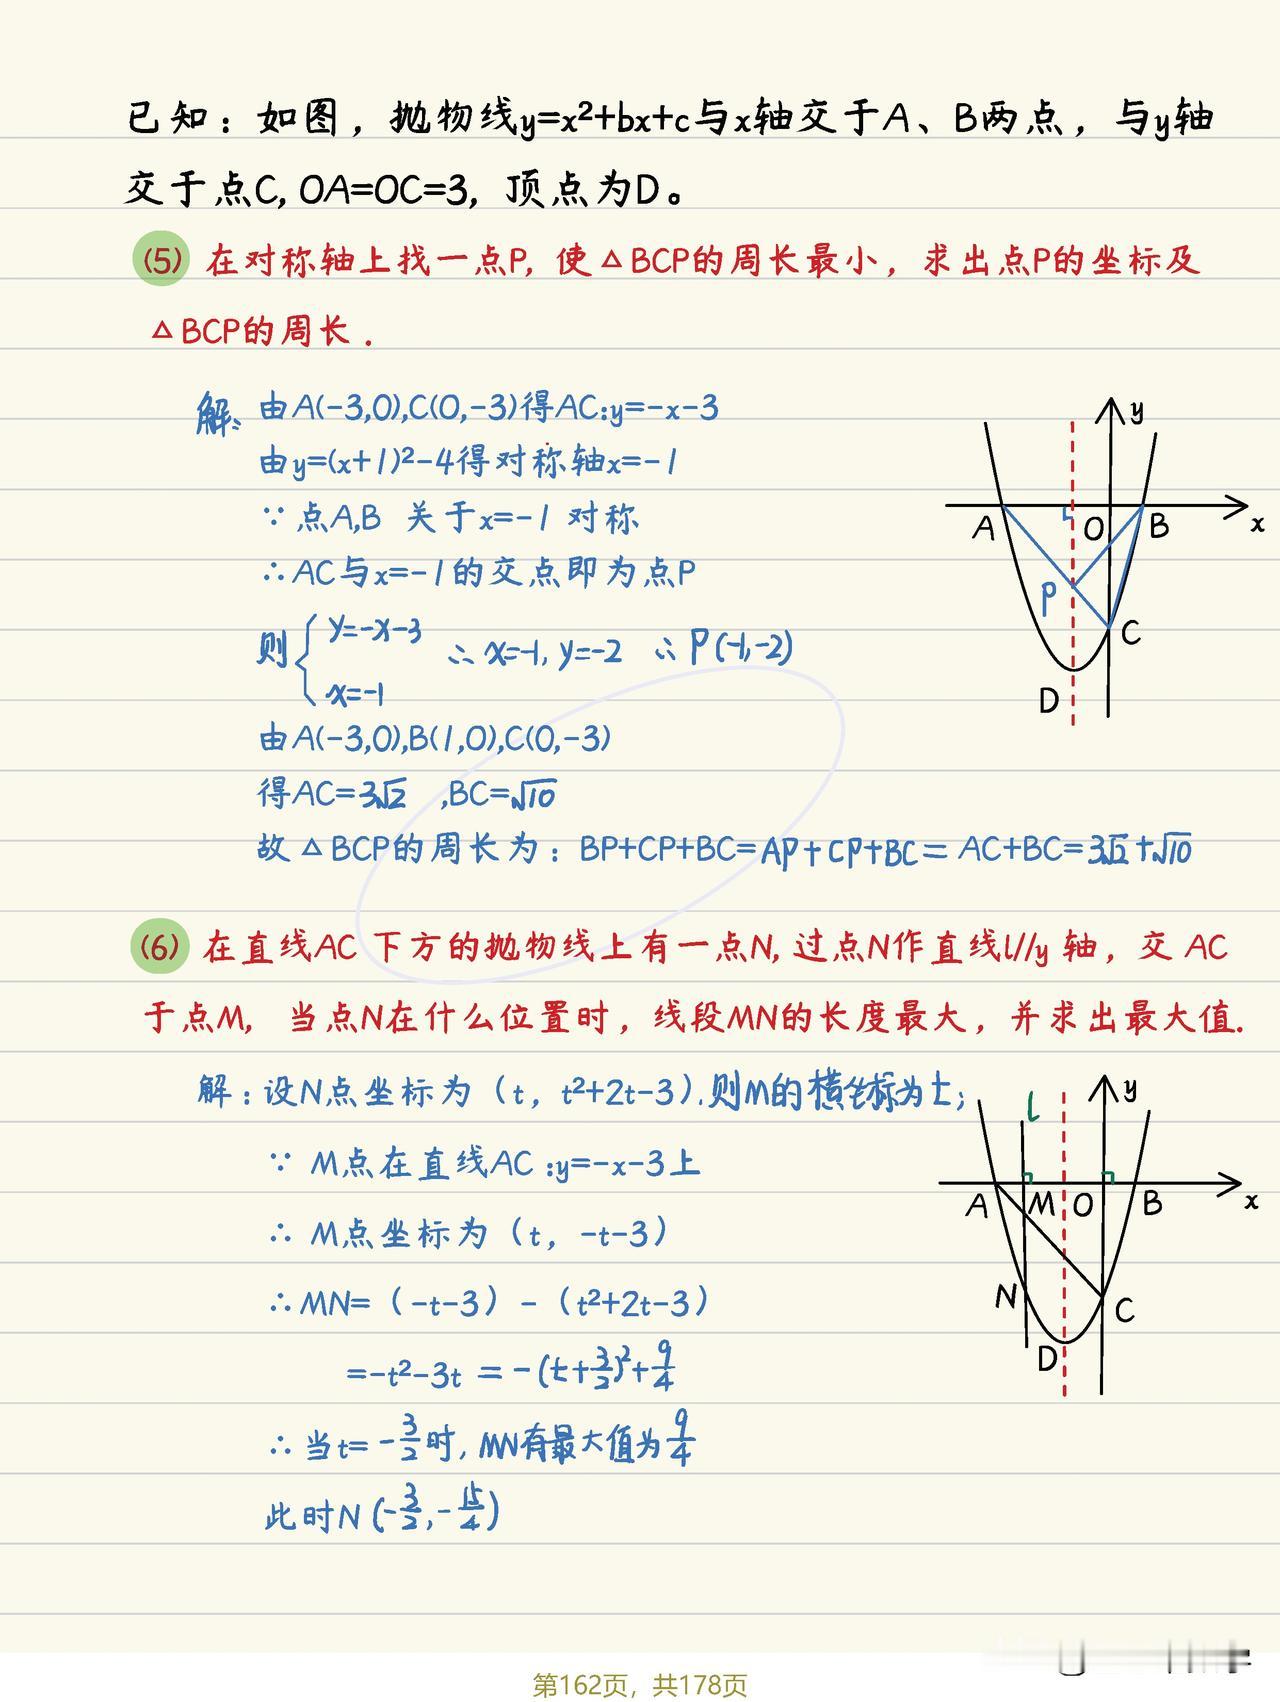 已知：如图，抛物线y=x²+bx+c与x轴交于A、B两点，与y轴
交于点C, OA=OC=3，顶点为D。
(5) 在对称轴上找一点P，使△BCP的周长最小，求出点P的坐标及
△BCP的周长.
解: 由A(-3,0),C(0,-3)得AC:y=-x-3
由y=(x+1)²-4得对称轴x=-1
∵点A,B 关于x=-1 对称
∴AC与x=-1的交点即为点P
则{y=-x-3
x=-1
∴ x=-1, y=-2 ∴ P(-1,-2)
由A(-3,0),B(1,0),C(0,-3)
得AC=3√2 ,BC=√10
故△BCP的周长为：BP+CP+BC=AP+CP+BC=AC+BC=3√2+√10
y
A
O
B
x
P
C
D
(6) 在直线AC 下方的抛物线上有一点N, 过点N作直线l//y 轴，交 AC
于点M， 当点N在什么位置时，线段MN的长度最大，并求出最大值.
解：设N点坐标为（t，t²+2t-3）.则M的横坐标为t;
∵ M点在直线AC :y=-x-3上
∴ M点坐标为（t，-t-3）
∴MN=（-t-3）-（t²+2t-3）
=-t²-3t = -(t+3/2)²+9/4
∴ 当t= -3/2时, MN有最大值为9/4
此时N (-3/2, -15/4)
l
y
A
M
O
B
x
N
C
D
第162页，共178页